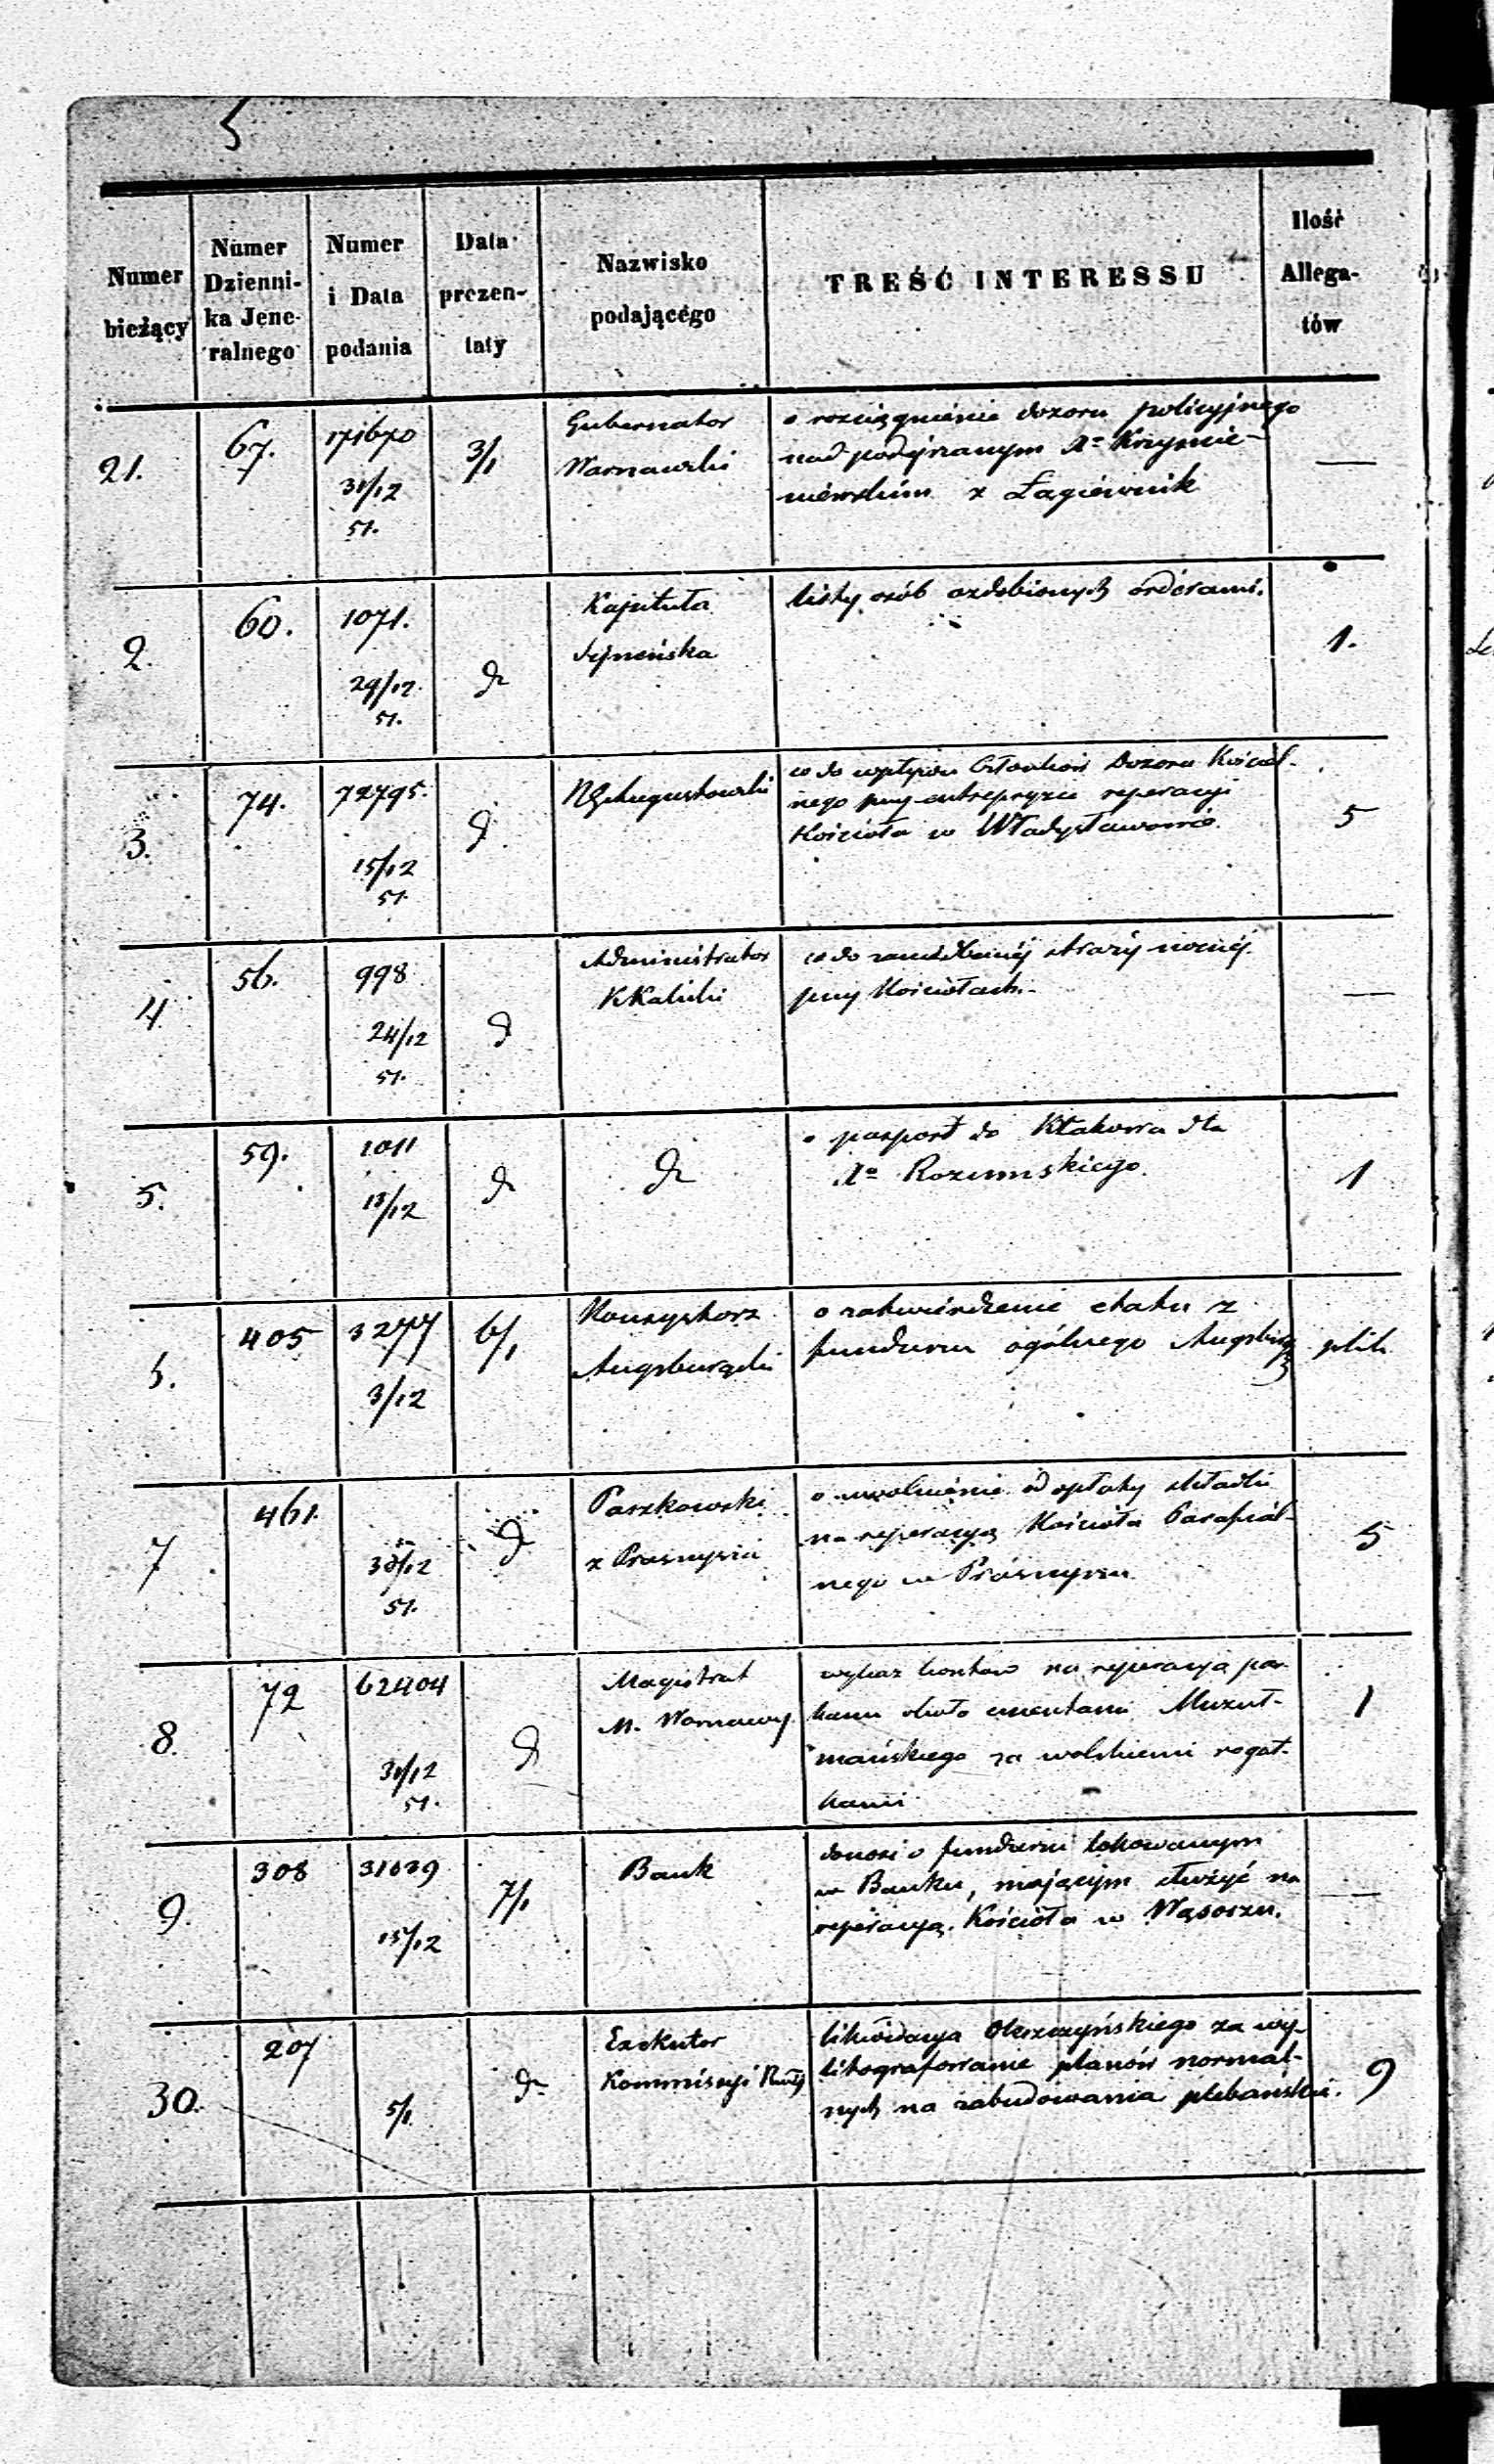 5
Numer bieżący
Numer Dzienni-ka Jene-ralnego
Numer i Data podania
Data prezen-taty
Nazwisko podającego
TREŚĆ INTERESSU
Ilość Allega-tów
21. 67. 171670 31/12 51. 3/1
Gubernator
Warszawski
o rozciągnienie dozoru policyjnego
nad podejrzanym Xe
z Łagiewnik
—
2. 60. 1071. 29/12 51. d
Kapituła
Sejneńska
listy osób ozdobionych orderami.
1.
3. 74. 72795. 15/12 51. d
RGAugustowski
co do wpływu Członków Dozoru Kościel-
nego przy entrepryzie reperacyi
Kościoła w Władysławowie
5
4 56. 998 24/12 51. d
Administrator
KKaliski
co do zaniedbanéj straży nocnéj
przy Kościołach.
—
5. 59. 1011 18/12 d
d
o pasport do Krakowa dla
Xa Rozumskiego.
1
6. 405 3277 3/12 6/1
Konsystorz
Augsburgski
o zatwierdzenie etatu z
funduszu ogólnego Augsburg
plik
7 461. 30/12 51. d
Paszkowski
z Prasnysza
o uwolnienie od opłaty składki
na reperacyą Kościoła Parafial-
nego w Prasnyszu
5
8. 72 62404 31/12 51. d
Magistrat
M. Warszawy
wykaz kosztów na reperacyą par-
kanu około cmentarza Muzuł-
mańskiego za wolskiemi rogat-
kami
1
9. 308 31639 15/12 7/1
Bank
donosi o funduszu lokowanym
w Banku, mającym służyć na
reperacyą Kościoła w Wąsoszu.
—
30. 207 5/1 d
Exekutor
Kommissyi
likwidacya Olszczyńskiego za wy-
litografowanie planów normal-
nych na zabudowania plebańskie.
9